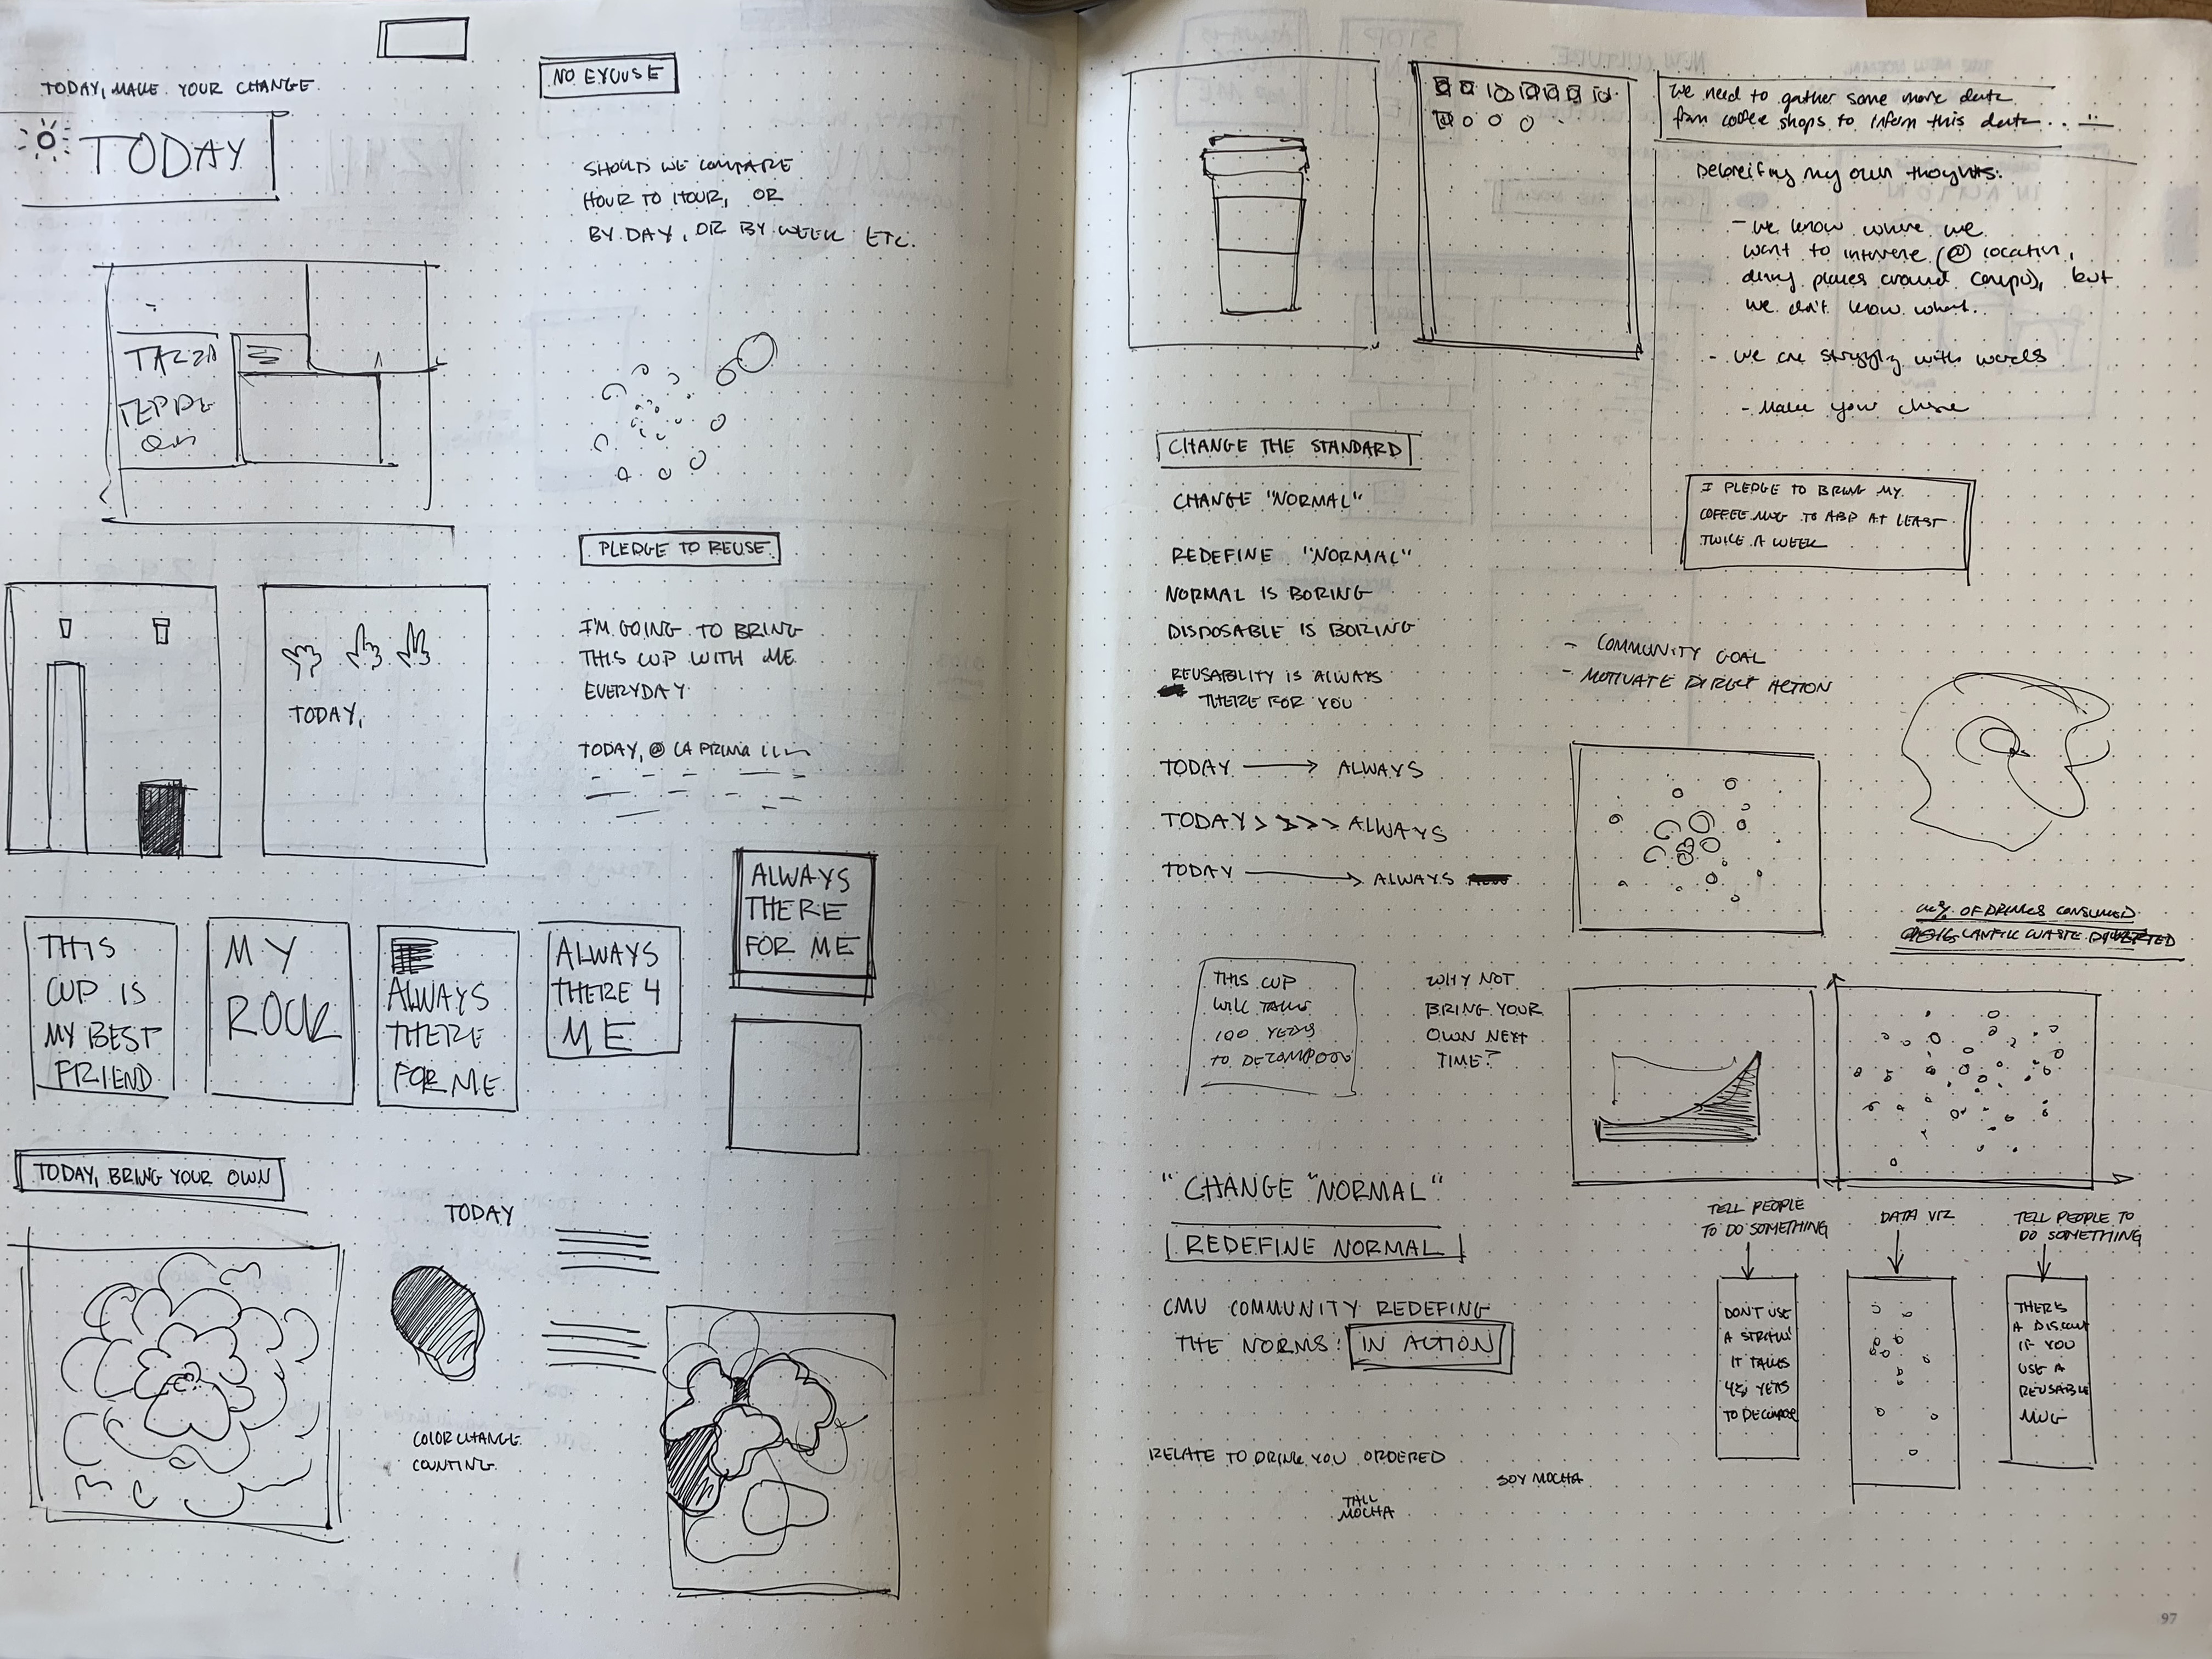 TODAY, MAKE YOUR CHANGE
TODAY
NO EXCUSE
SHOULD WE COMPARE
HOUR TO HOUR, OR
BY DAY, OR BY WEEK ETC.
PLEDGE TO REUSE
I'M GOING TO BRING
THIS CUP WITH ME
EVERYDAY
TODAY, @ LA PRIMA
TODAY,
THIS
CUP IS
MY BEST
FRIEND
MY
ROCK
ALWAYS
THERE
FOR ME
ALWAYS
THERE 4
ME
ALWAYS
THERE
FOR ME
TODAY, BRING YOUR OWN
TODAY
COLOR CHANGE
COUNTING
We need to gather some more data
from coffee shops to inform this data..
my own thoughts:
- We know where we
want to intervene (@ location,
dining places around campus), but
we don't know what..
- We are struggling with words
- Make your
CHANGE THE STANDARD
CHANGE "NORMAL"
REDEFINE "NORMAL"
NORMAL IS BORING
DISPOSABLE IS BORING
REUSABILITY IS ALWAYS
THERE FOR YOU
I PLEDGE TO BRING MY
COFFEE MUG TO ABP AT LEAST
TWICE A WEEK
- COMMUNITY GOAL
- MOTIVATE DIRECT ACTION
TODAY → ALWAYS
TODAY > > > > ALWAYS
TODAY → ALWAYS
OF DRINKS CONSUMED
LANFILL WASTE DIVERTED
THIS CUP
WILL TAKE
100 YEARS
TO DECOMPOSE
WHY NOT
BRING YOUR
OWN NEXT
TIME?
"CHANGE "NORMAL"
REDEFINE NORMAL
CMU COMMUNITY REDEFING
THE NORMS: IN ACTION
TELL PEOPLE
TO DO SOMETHING
DATA VIZ
TELL PEOPLE TO
DO SOMETHING
DON'T USE
A STRAW!
IT TAKES
YEARS
TO DECOMPOSE
THERE'S
A
IF YOU
USE A
REUSABLE
MUG
RELATE TO DRINK YOU ORDERED
SOY MOCHA
TALL
MOCHA
97